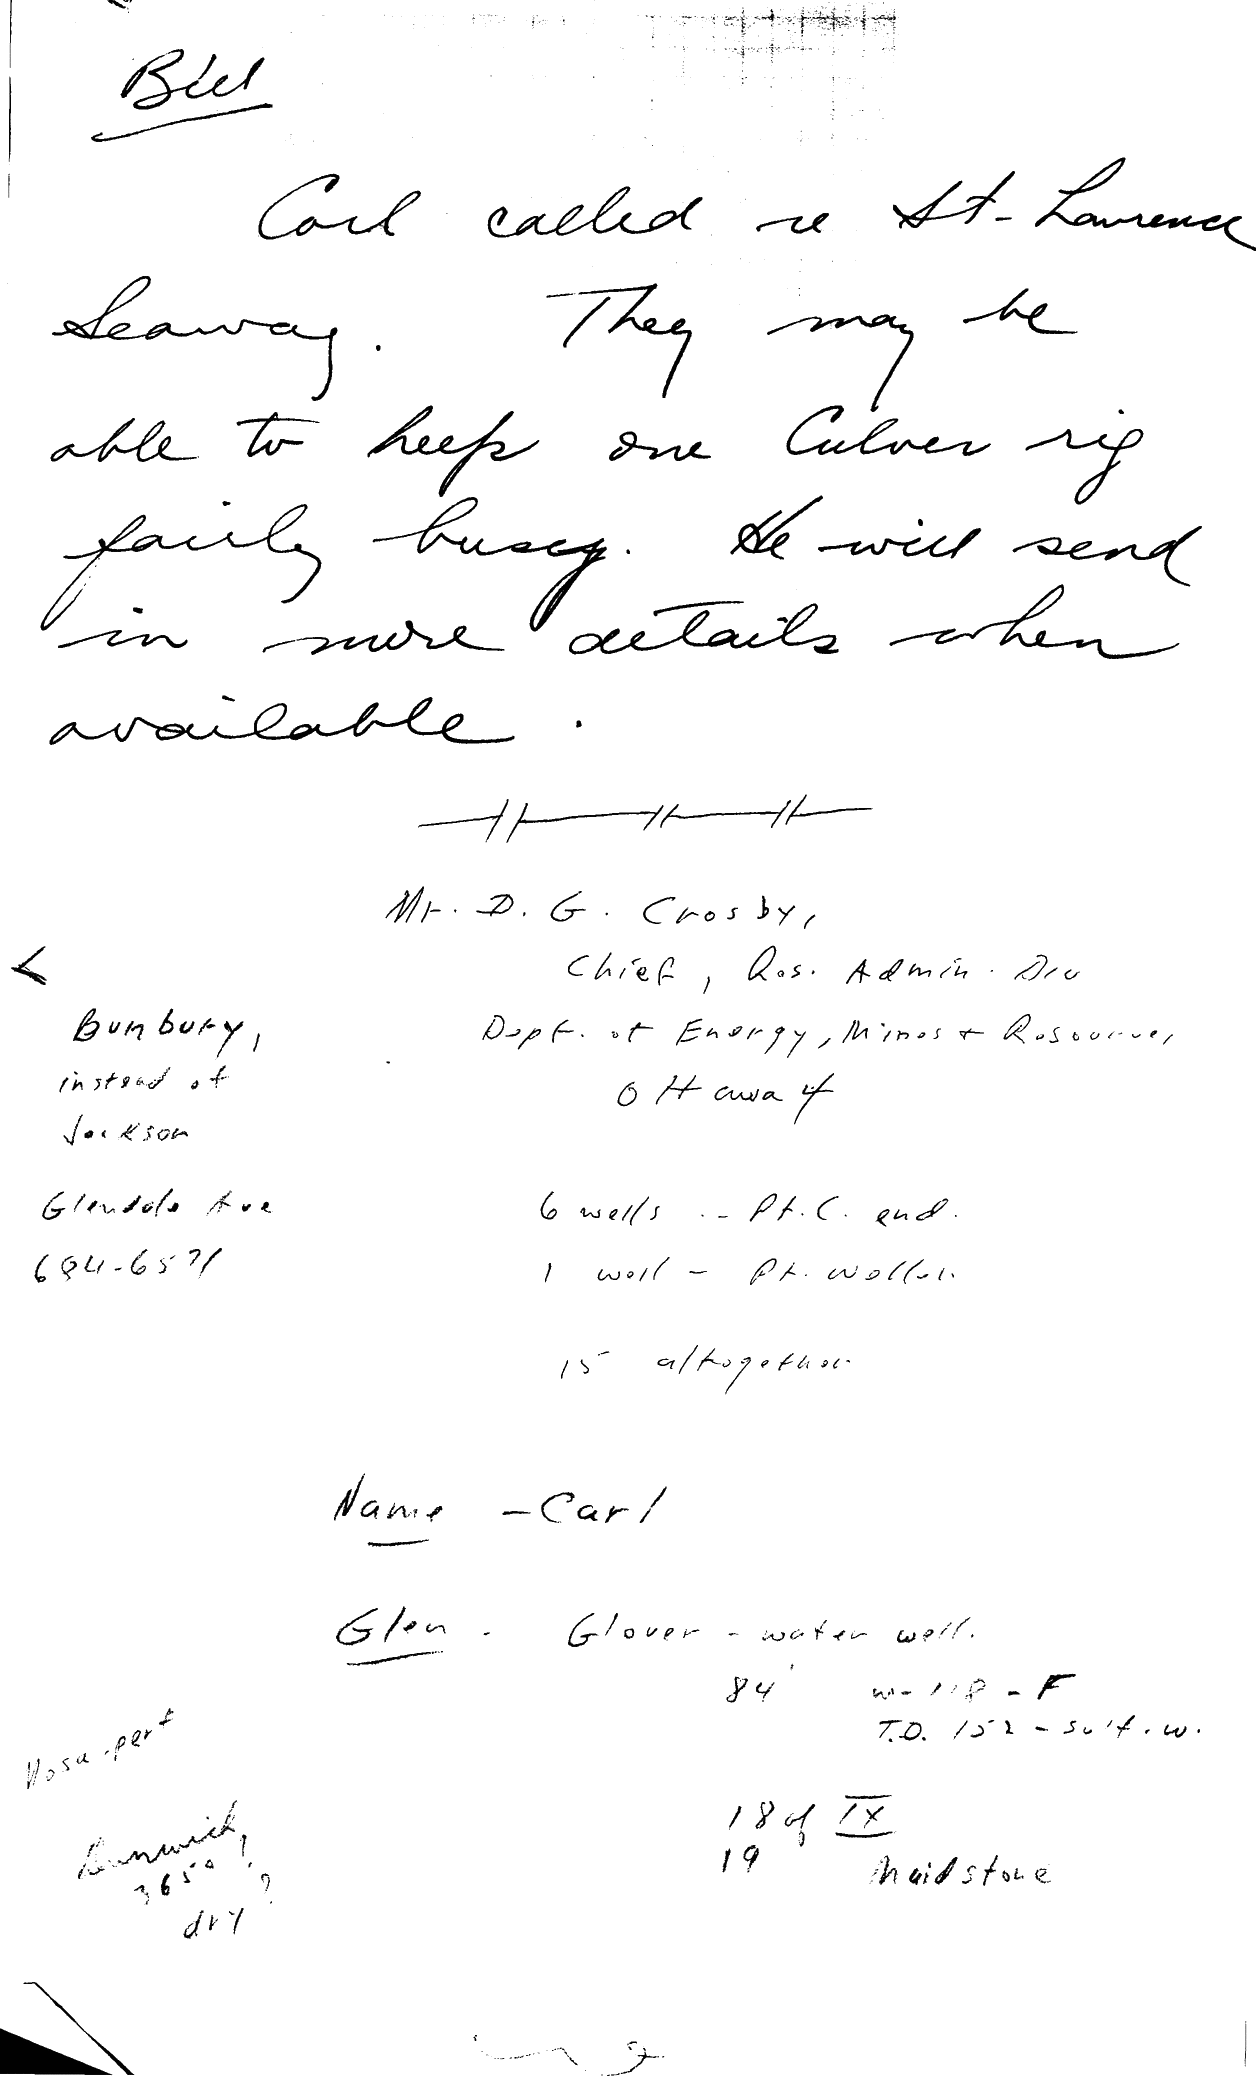 Bill
Carl called re St. Lawrence
Seaway. They may be
able to keep one Culver rig
fairly busy. He will send
in more details when
available.
Mr. D. G. Crosby,
Chief, Res. Admin. Div
Dept. of Energy, Mines + Resources,
Ottawa 4
Bunbury,
instead of
Jackson
Glendale Ave
684-6571
6 wells -- Pt. C. end.
1 well - Pt. Weller.
15 altogether
Name - Carl
Glen - Glover - water well.
84' W-118-F
T.D. 152 - sulf. w.
18 of IX
19 Maidstone
Mosa - pert
Dunwich,
3650'?
dry?